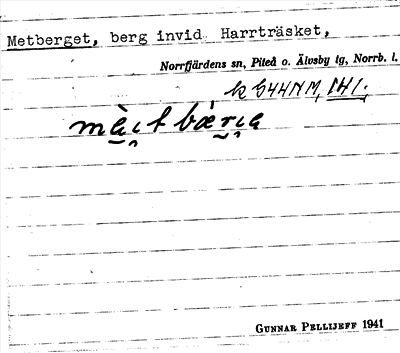 Metberget, berg invid Harrträsket,
Norrfjärdens sn, Piteå o. Älvsby tg, Norrb. l.
141.
GUNNAR PELLIJEFF 1941